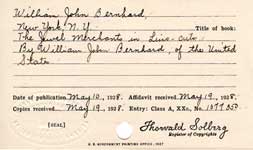 William John Bernhard,
New York, N.Y.
Title of book:
The Jewel Merchants in Line-cuts
By William John Bernhard, of the United
States
Date of publication May 10, 1928. Affidavit received May 19, 1928.
Copies received May 19, 1928. Entry: Class A, XXc., No. 1077350
[SEAL]
Thorvald Solberg
Register of Copyrights
U. S. GOVERNMENT PRINTING OFFICE, 1927